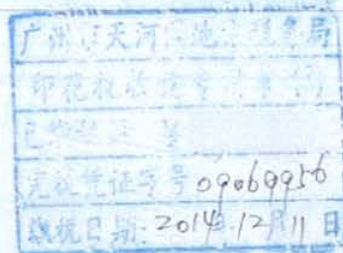 广州市天河区地方税务局
印花税收讫专用章
已缴
完税凭证字号 09069956
缴税日期: 2014年12月11日